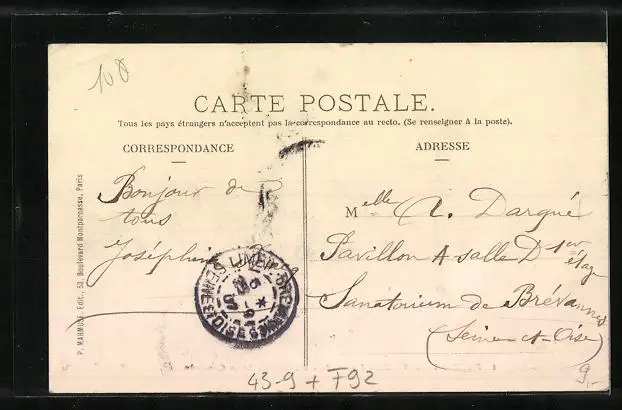 108
CARTE POSTALE.
Tous les pays étrangers n'acceptent pas la correspondance au recto. (Se renseigner à la poste).
CORRESPONDANCE
ADRESSE
P. MARMUSE, Edit., 53, Boulevard Montparnasse, Paris
Bonjour de
tous
Joséphine
Melle A. Dargué
Pavillon A salle D 1er
étage
Sanatorium de Brévannes
(Seine et Oise)
LIMEIL-BREVANNES
SEINE-ET-OISE
43-9 + F92
9,-